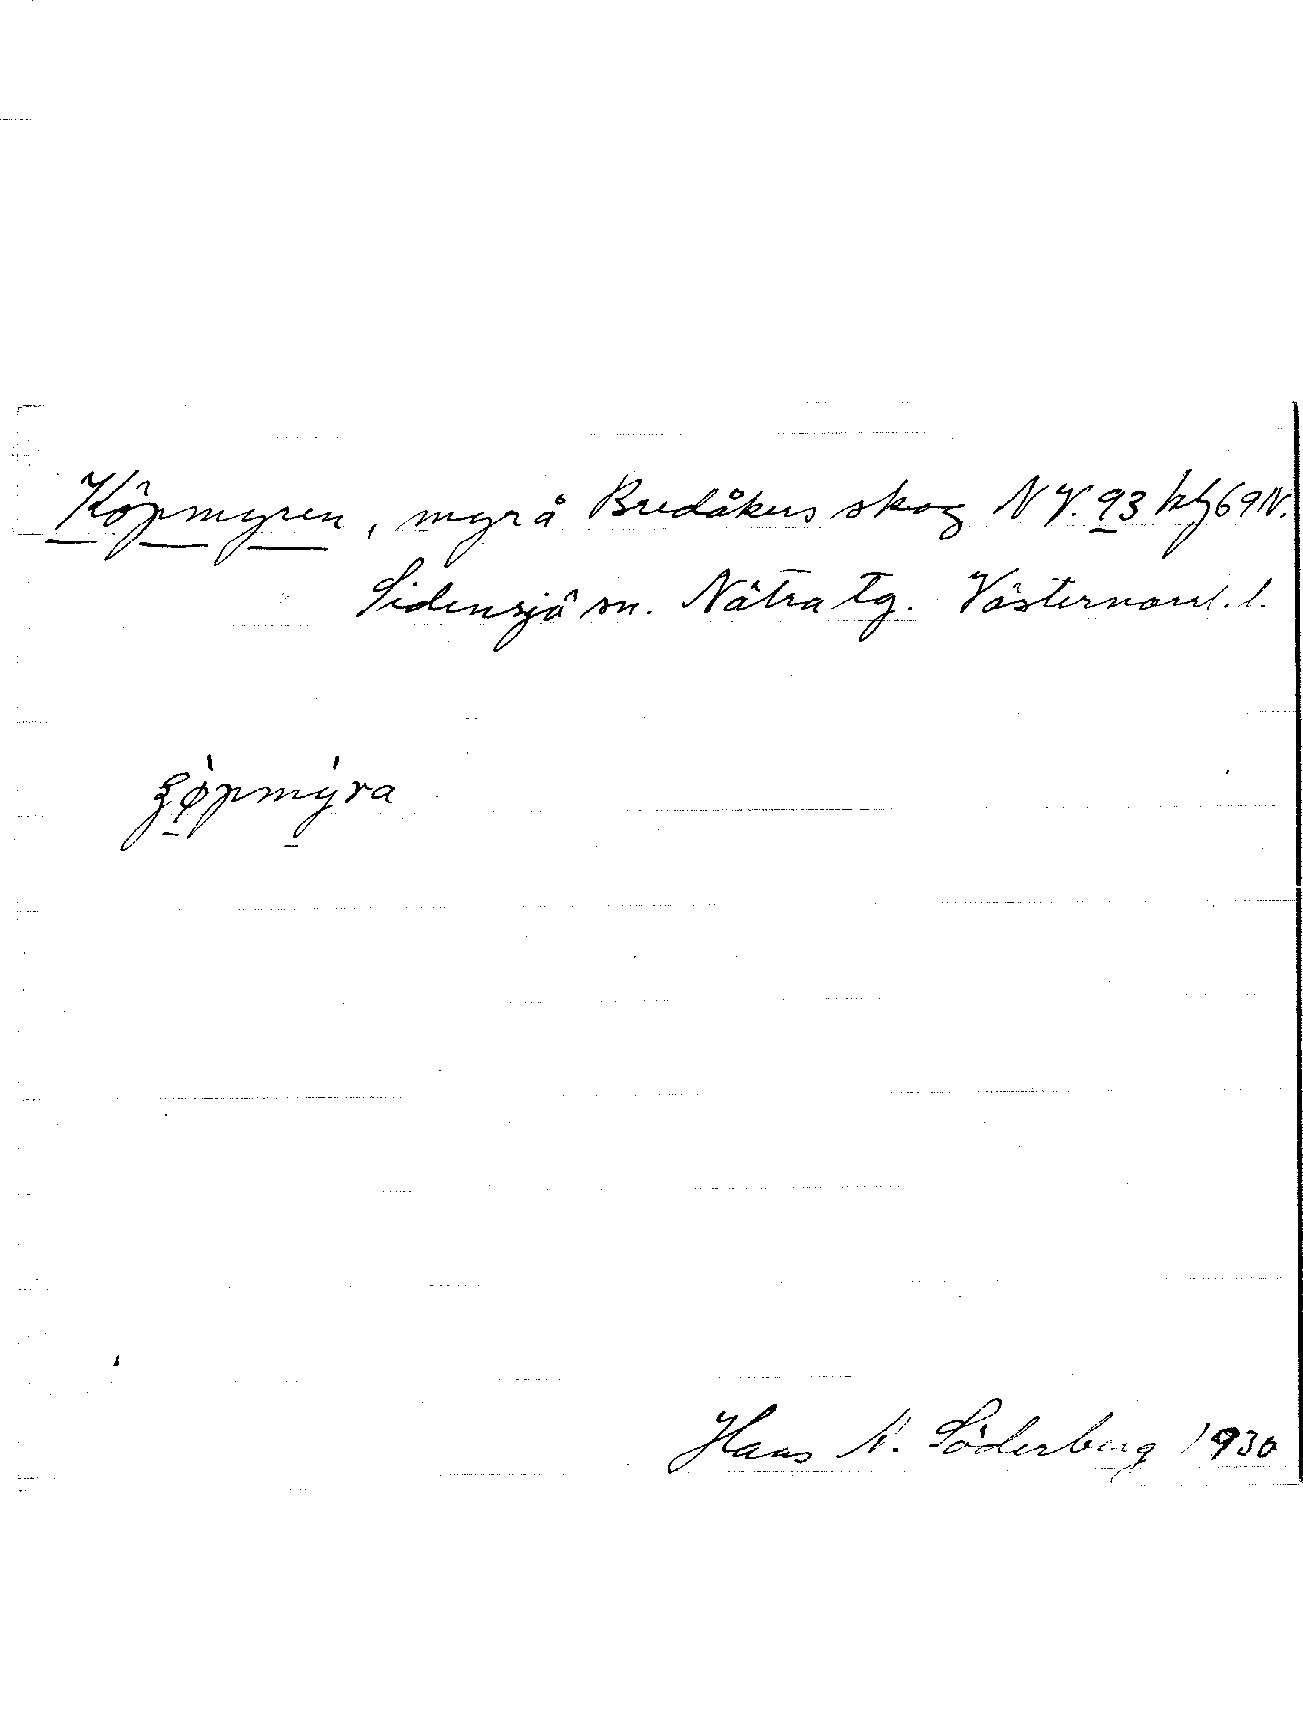 Köpmyren, myr å Bredåkers skog NV. 93 69 N.
Sidensjö sn. Nätra tg. Västernorrl. l.
göpmýra
Hans N. Söderberg 1930